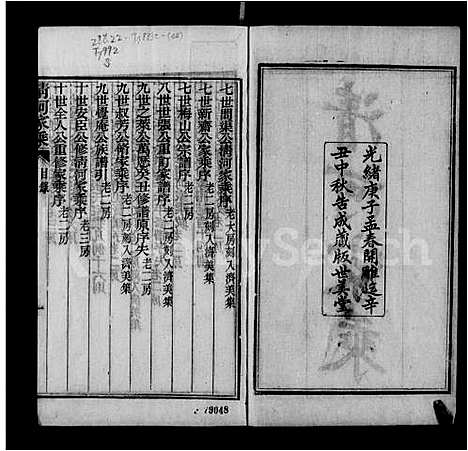 光緒庚子孟春開雕迄辛
丑中秋告成藏版世美堂
七世間渠公清河家乘序 老大房刻入濟美集
七世新齋公家乘序 老二房刻入濟美集
七世梅山公家譜序 老二房
八世世強公重訂家乘序 老二房
九世之渠公萬曆癸丑修譜原序失 老二房
九世叔芳公續家乘序 老二房刻入濟美集
九世覺庵公族譜引 老二房
十世安臣公修清河家乘序 老三房
十世全人公重修家乘序 老二房
清河家乘 目錄
79048